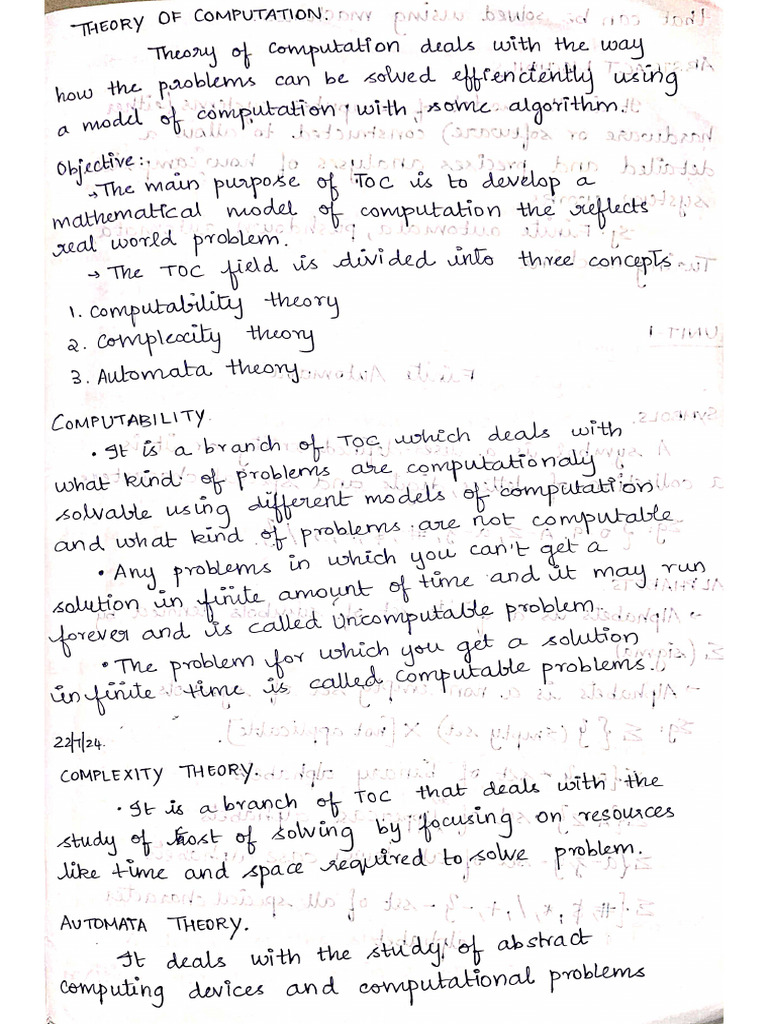 THEORY OF COMPUTATION.
Theory of computation deals with the way
how the problems can be solved effienciently using
a model of computation, with some algorithm.
Objective:.
→The main purpose of TOC is to develop a
mathematical model of computation the reflects
real world problem.
→ The TOC field is divided into three concepts
1. computability theory
2. complexity theory
3. Automata theory.
COMPUTABILITY.
• It is a branch of TOC which deals with
what kind of problems are computationaly
solvable using different models of computation
and what kind of problems are not computable
• Any problems in which you can't get a
solution in finite amount of time and it may run
forever and is called Uncomputable problem.
• The problem for which you get a solution
in finite time is called computable problems.
22/7/24.
COMPLEXITY THEORY.
• It is a branch of TOC that deals with the
study of cost of solving by focusing on resources
like time and space required to solve problem.
AUTOMATA THEORY.
It deals with the study of abstract
computing devices and computational problems